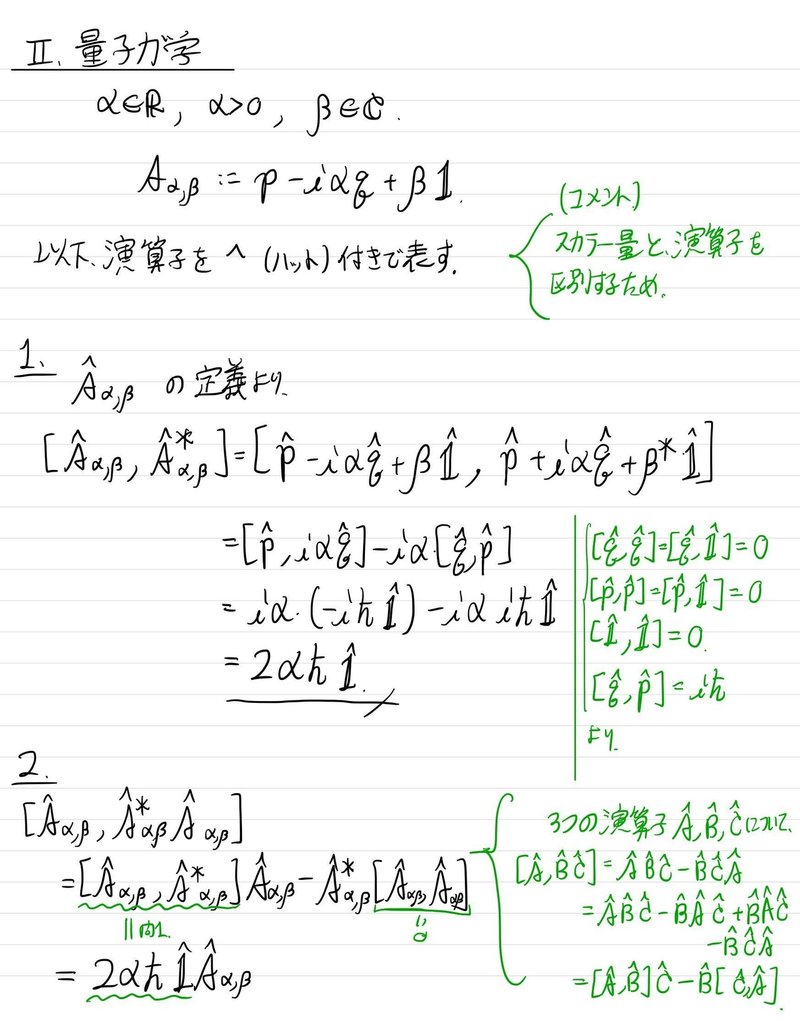 II. 量子力学
α∈ℝ, α>0, β∈ℂ.
A_{α,β} := p - iαq + β𝟙.
以下、演算子を ^ (ハット) 付きで表す.
(コメント)
スカラー量と、演算子を
区別するため.
1.
Â_{α,β} の定義より.
[Â_{α,β}, Â*_{α,β}] = [p̂ - iαq̂ + β𝟙̂, p̂ + iαq̂ + β*𝟙̂]
= [p̂, iαq̂] - iα[q̂, p̂]
= iα・(-iħ𝟙̂) - iα iħ𝟙̂
= 2αħ𝟙̂.
[q̂, q̂] = [q̂, 𝟙̂] = 0
[p̂, p̂] = [p̂, 𝟙̂] = 0
[𝟙̂, 𝟙̂] = 0.
[q̂, p̂] = iħ
より.
2.
[Â_{α,β}, Â*_{α,β} Â_{α,β}]
= [Â_{α,β}, Â*_{α,β}] Â_{α,β} - Â*_{α,β} [Â_{α,β}, Â_{α,β}]
|| 問1. || 0
= 2αħ𝟙̂ Â_{α,β}
3つの演算子 Â, B̂, Ĉ について.
[Â, B̂Ĉ] = ÂB̂Ĉ - B̂ĈÂ
= ÂB̂Ĉ - B̂ÂĈ + B̂ÂĈ
- B̂ĈÂ
= [Â, B̂]Ĉ - B̂[Ĉ, Â].